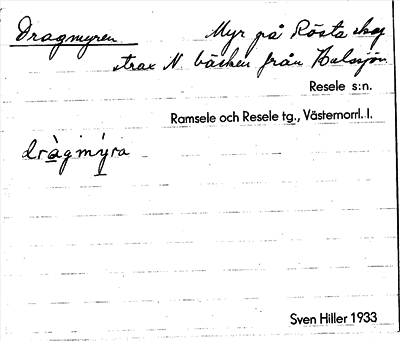 Dragmyren Myr på Rösta skog
strax N. bäcken från Halssjön
Resele s:n.
Ramsele och Resele tg., Västernorrl. l.
dràgmýra
Sven Hiller 1933